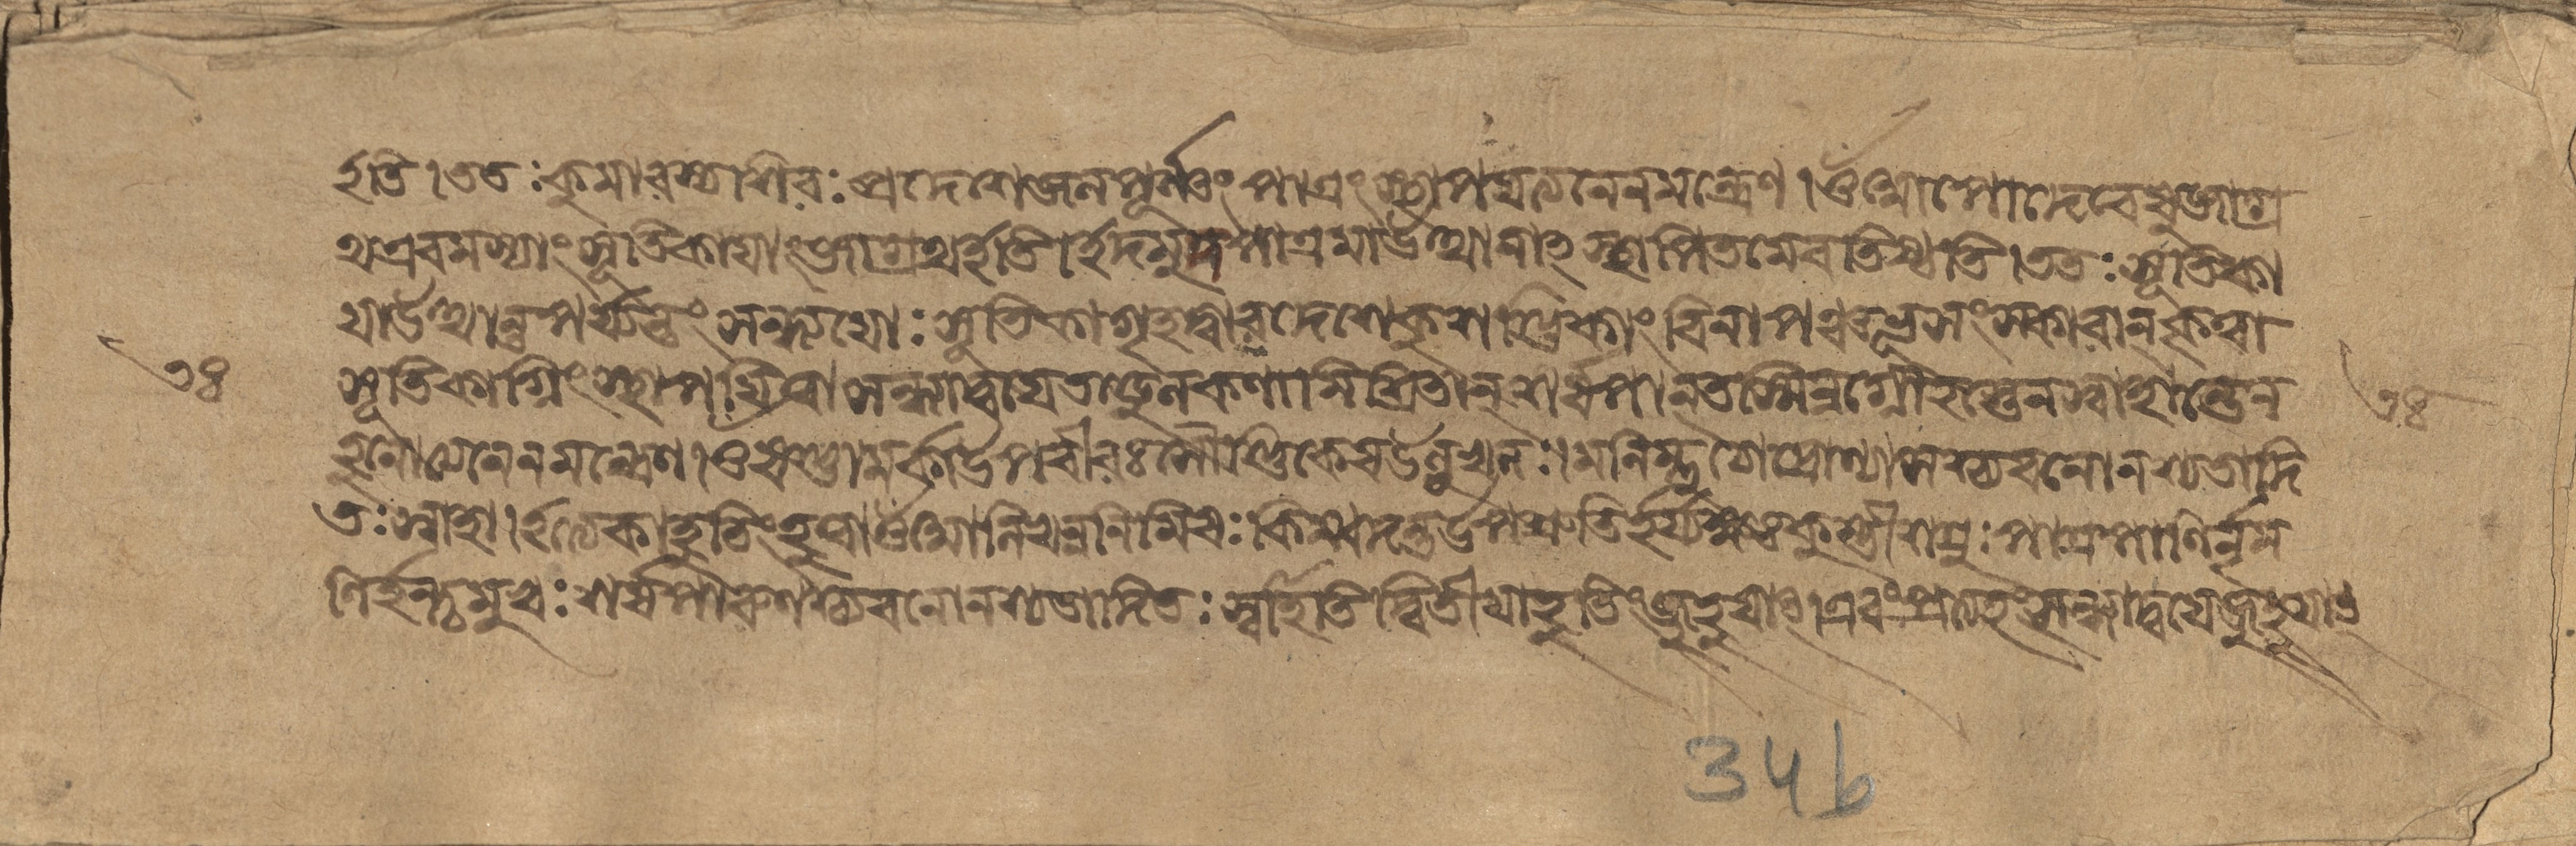 ইতি।ততঃকুমারস্যশিরঃপ্রদেশেজলপূর্ণং পাত্রং স্থাপয়ত্যনেনমন্ত্রেণ।ওঁআপোদেবেষুজাগ্র
থএবমস্যাং সূতিকায়াং জাগ্রথইতি।ইদমুদপাত্রমাউত্থানাৎস্থাপিতমেবতিষ্ঠতি।ততঃসূতিকা
য়াউত্থানপর্য্যন্তং সন্ধ্যয়োঃসূতিকাগৃহদ্বারদেশেকুশণ্ডিকাং বিনাপঞ্চভূসংস্কারান্‌কৃত্বা
সূতিকাগ্নিং স্থাপয়িত্বাসন্ধ্যাদ্বয়েতণ্ডুলকণামিশ্রিতান্‌সর্ষপান্‌তস্মিন্নগ্নৌহস্তেনস্বাহান্তেন
হূনোত্যনেনমন্ত্রেণ।ওঁষণ্ডামর্কাউপবীরঃশৌণ্ডিকেয়উলূখলঃ।মলিম্লুচোদ্রোণাসশ্চ্যবনোনশ্যতাদি
তঃস্বাহা।ইত্যেকাহুতিং হুত্বাওঁআলিখন্ননিমিষঃকিম্বদন্তউপশ্রুতির্হর্য্যক্ষঃকুম্ভীশত্রুঃপাত্রপাণির্নৃম
ণির্হন্ত্রীমুখঃসর্ষপারুণশ্চ্যবনোনশ্যতাদিতঃস্বাহেতিদ্বিতীয়াহুতিং জুহুয়াৎ।এবং প্রত্যহং সন্ধ্যাদ্বয়েজুহুয়াৎ
৩৪
৩৪
34b